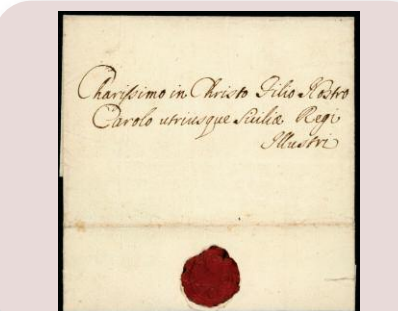 Charissimo in Christo Filio Nostro
Carolo utriusque Siciliæ Regi
Illustri